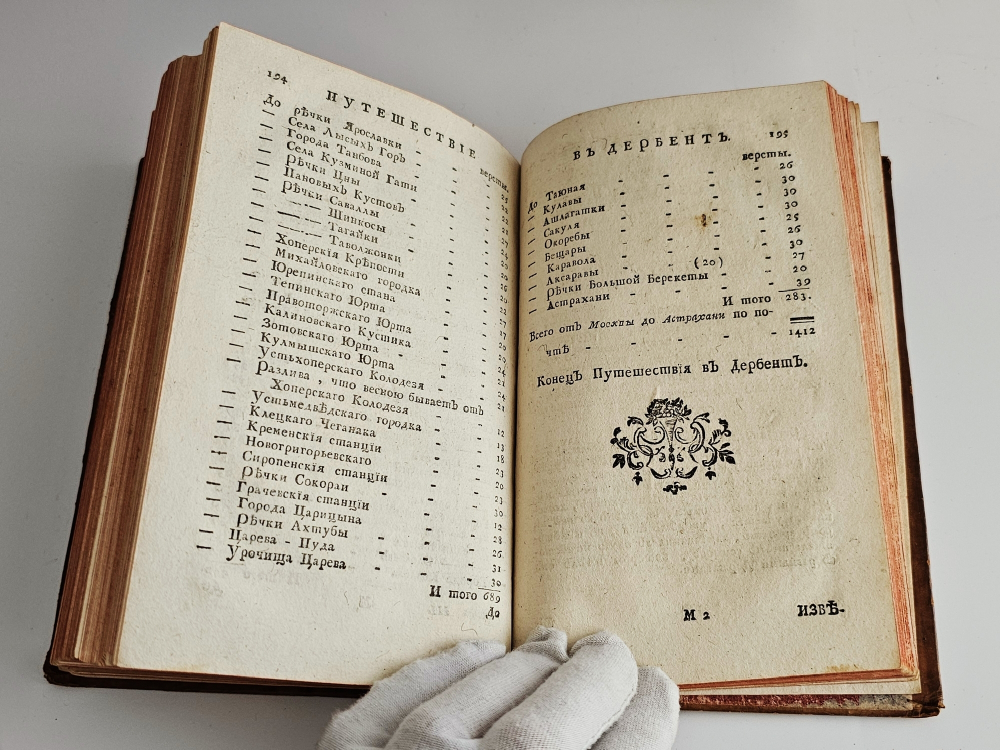 194
ПУТЕШЕСТВІЕ
версты.
До рѣчки Ярославки - - 25
— Села Лысыхъ Горъ - - 22
— Города Танбова - -
— Села Кузминой Гати - -
— Рѣчки Цны - -
— Пановыхъ Кустовъ - -
— Рѣчки Саваллы - -
— —·— Шинкосы - -
— —·— Тагайки - -
— —·— Таволжонки - -
— Хоперскія Крѣпости - -
— Михайловскаго городка - -
— Юрепинскаго стана - -
— Тепинскаго Юрта - -
— Правоторжскаго Юрта - - 29
— Калиновскаго Кустика - - 24
— Зотовскаго Юрта - - - 21
— Кулмышскаго Юрта - - 24
— Устьхоперскаго Колодезя - - 21
— Разлива, что весною бываетъ отъ
Хоперскаго Колодезя - - 12
— Устьмедвѣдскаго городка - - 13
— Клецкаго Чеганака - - 18
— Кременскія станціи - - 23
— Новогригорьевскаго - - 20
— Сиропенскія станціи - - 23
— Рѣчки Сокораи - - - 30
— Грачевскія станціи - - 12
— Города Царицына - - 28
— Рѣчки Ахтубы - - - 26
— Царева - Пуда - - - 31
— Урочища Царева - - - 30
И того 689
До
ВЪ ДЕРБЕНТЪ. 195
версты.
До Таюная - - - - 26
— Кулавы - - - - 30
— Ашлагашки - - - 30
— Сакуля - - - - 30
— Окоребы - - - - 25
— Бещары - - - - 26
— Каравола - - - - 30
— Аксаравы - - (20) - 27
— Рѣчки Большой Берекеты - - 20
— Астрахани - - - - 39
И того 283.
Всего отъ Москвы до Астрахани по по-
чтѣ - - - - - 1412
Конецъ Путешествія въ Дербентъ.
М 2
ИЗВѢ-